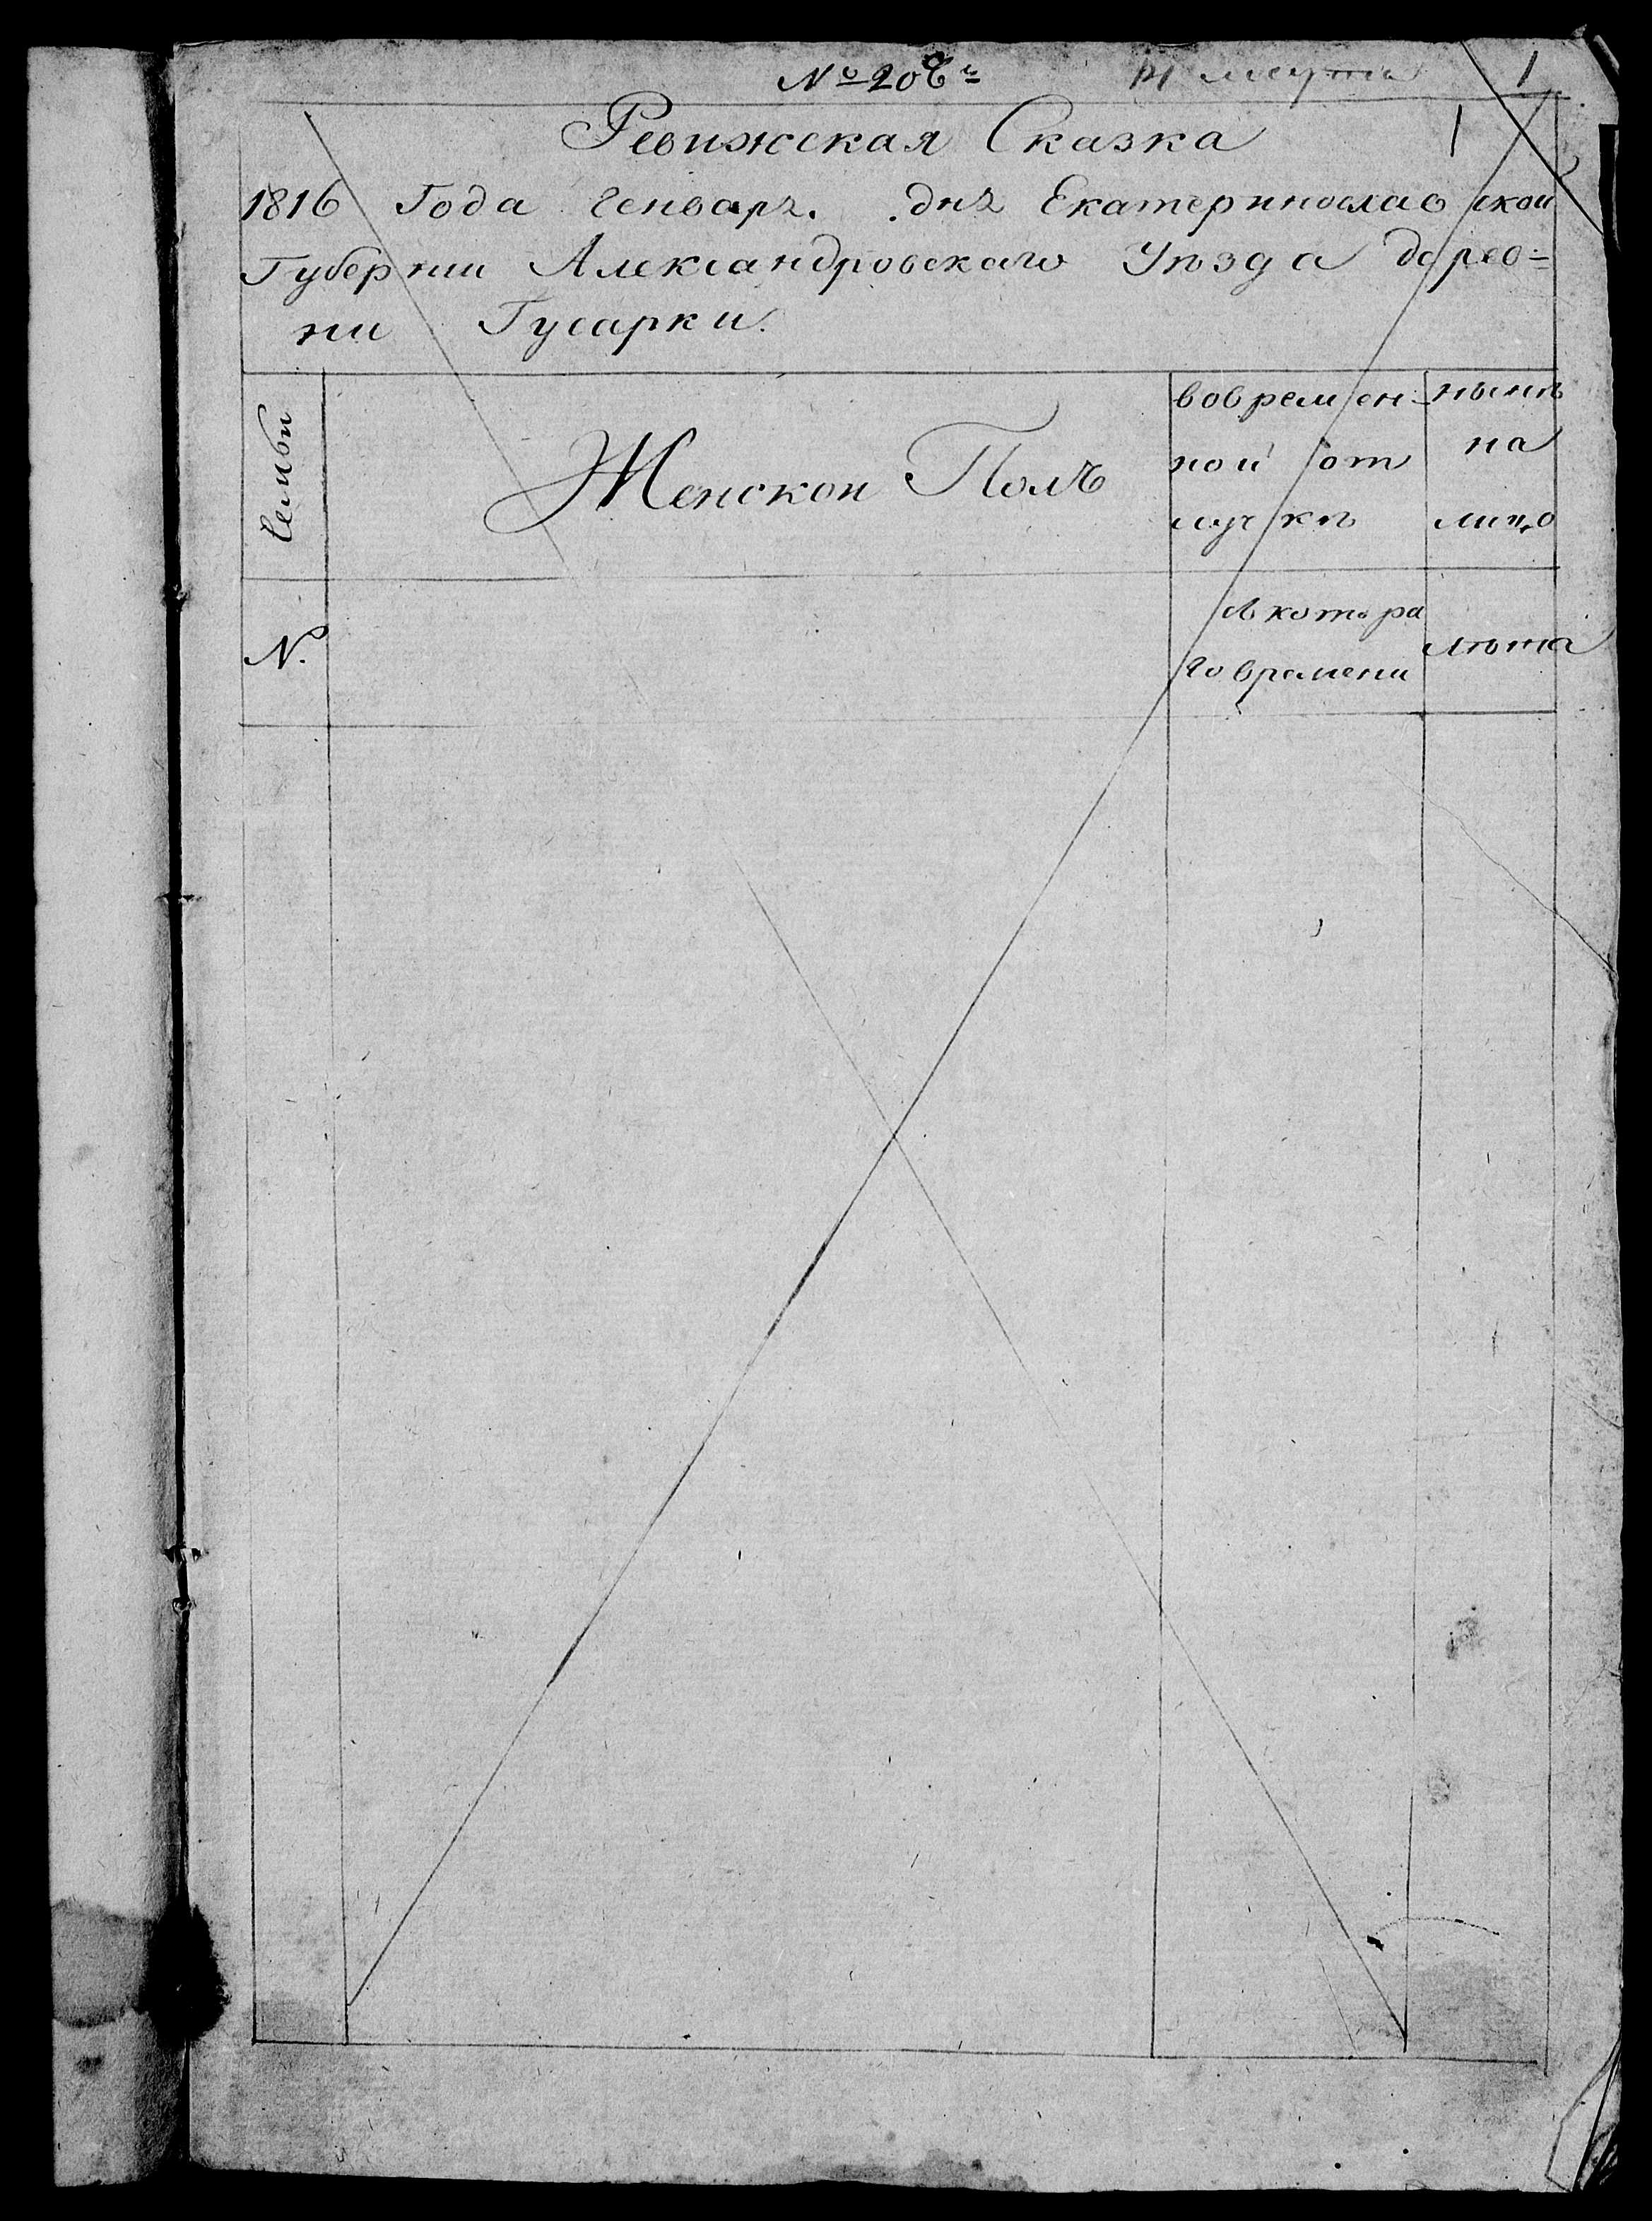 № 20
1
Ревижская Сказка
1
1816 Года Генваря. дня Екатеринославской
Губернии Александровскаго Уѣзда дерев=
ни Гусарки.
Семьи
Женской Полъ
вовремен=
ной от
лучкѣ
нынѣ
на
лицо
N.
Съкотора
го времени
лѣта